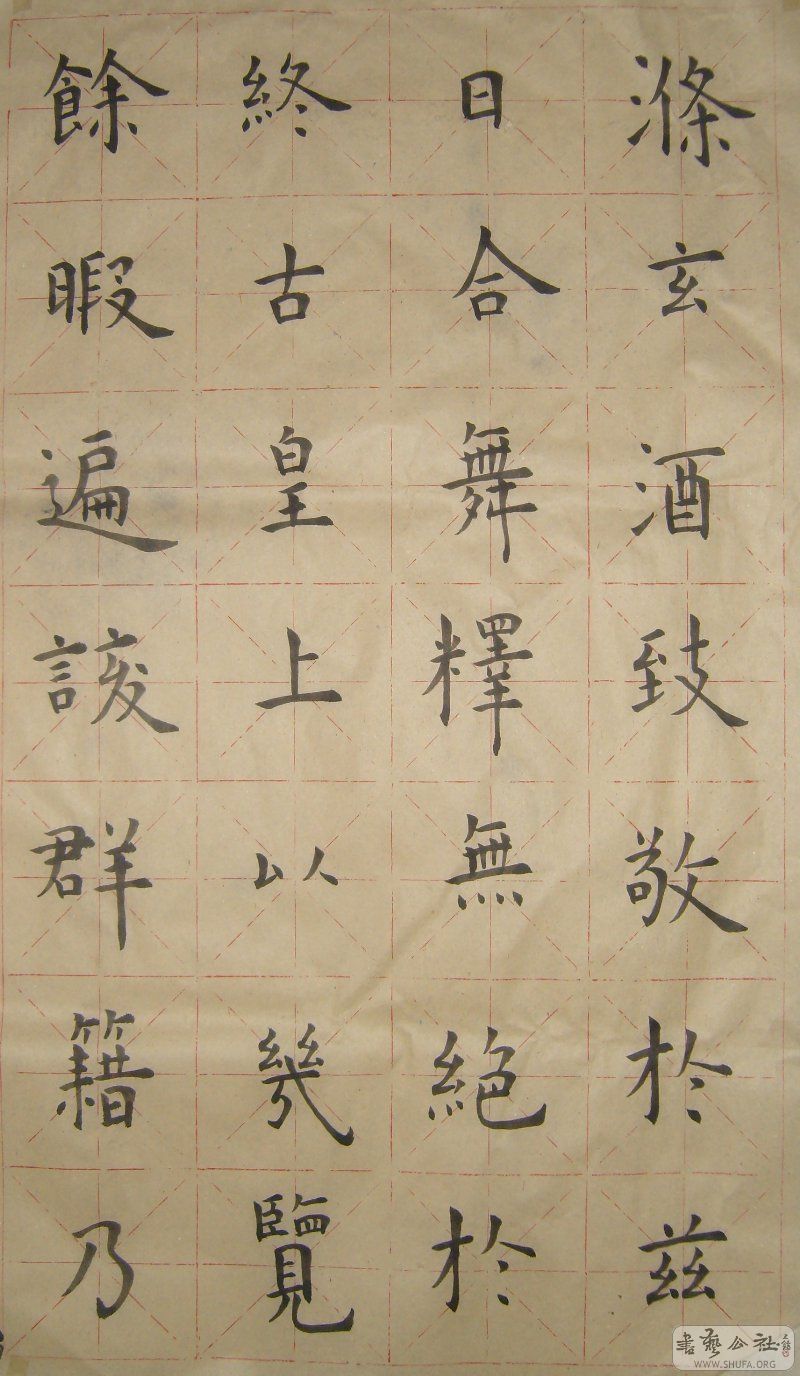 滌玄酒致敬於茲
日合舞釋無絕於
終古皇上以幾覽
餘暇遍該群籍乃
書藝公社
WWW.SHUFA.ORG